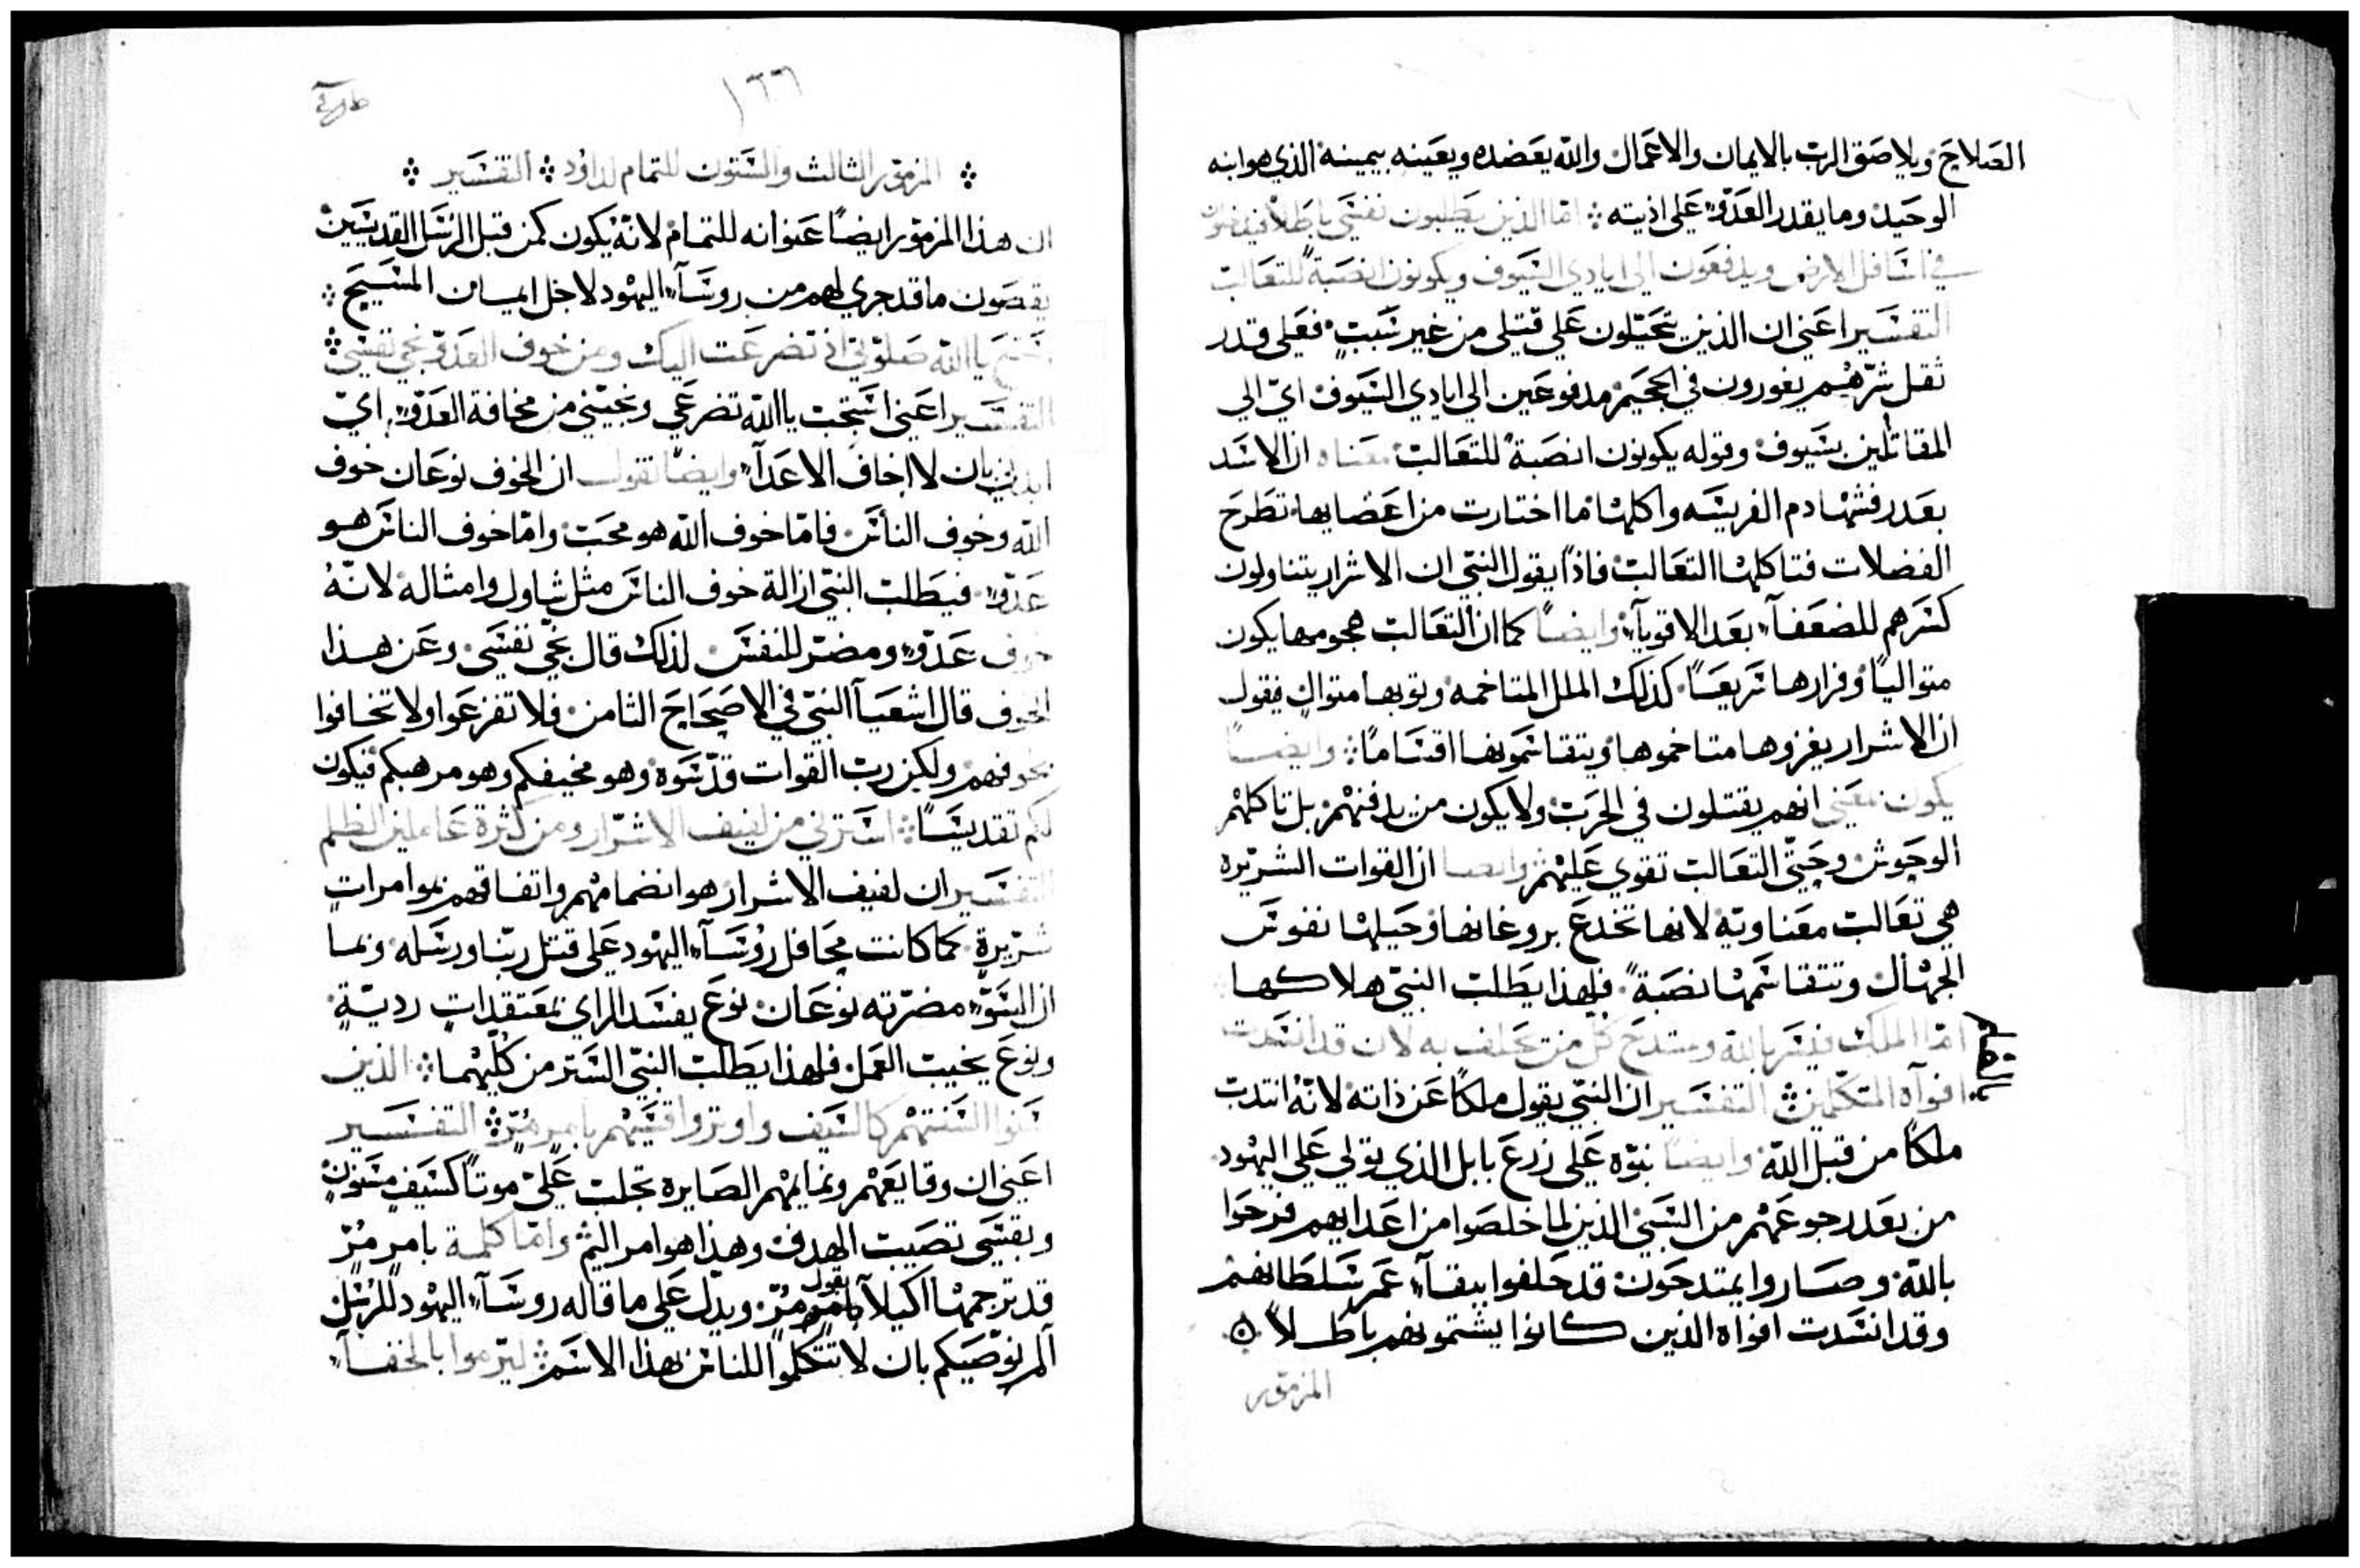 الصلاح ويلاصق الرب بالايمان والاعمال والله يعضده ويعينه بيمينه الذي هو ابنه
الوحيد وما يقدر العدو على اذيته ፨ امّا الذين يطلبون نفسي باطلاً فيدخلون
في اسافل الارض ويدفعون الى ايادي السيوف ويكونون انصبة للثعالب
التفسير اعني ان الذين يتحيّلون على قتيلي من غير سبب فعلى قدر
ثقل شرّهم يغورون في الجحيم مدفوعين الى ايادي السيوف ايّ الى
المقاتلين بسيوف وقوله يكونون انصبة للثعالب معناه ان الاسد
بعد رفشها دم الفريسه واكلها ما اختارت من اعضايها تطرح
الفضلات فتاكلها الثعالب فاذاً يقول النبي ان الاشرار يتناولون
كسرهم للضعفآء بعد الاقويآء وايضاً كما ان الثعالب هجومها يكون
متوالياً وفرارها سريعاً كذلك الملل المتاخمه وثوبها متوال فيقول
ان الاشرار يغزوها متاخموها ويتقاسمونها اقتساماً ፨ وايضاً
يكون معنى انهم يقتلون في الحرب ولا يكون من يدفنهم بل تاكلهم
الوحوش وحتّى الثعالب تقوى عليهم وايضا ان القوات الشريره
هي ثعالب معناويّة لانها تخدع بروغانها وحيلها نفوس
الجهال وتتقاسمها نصبة فلهذا يطلب النبي هلاكها
امّا الملك فيسر بالله ويمتدح كل من يحلف به لان قد انسدت
افوآه المتكلمين ፨ التفسير ان النبي يقول ملكاً عن ذاته لانّه انتدب
ملكاً من قبل الله وايضاً نبوّه على زرع بابل الذي تولى على اليهود
من بعد رجوعهم من السبي الذين لما خلصوا من اعدايهم فرحوا
بالله وصاروا يمتدحون قد حلفوا ببقآء عمر سلطانهم
وقد انسدت افواه الذين كانوا يشتمونهم باطلاً ه
المزمور
١٦٦
፨ المزمور الثالث والستون للتمام لداوُد ፨ التفسير ፨
ان هذا المزمور ايضاً عنوانه للتمام لانّه يكون كمن قبل الرسل القديسين
يقصون ما قد جرى لهم من روسآء اليهود لاجل ايمان المسيح ፨
يا الله صلوتي اذ تضرعت اليك ومن خوف العدوّ نجي نفسي ፨
التفسير اعني استجب يا الله تضرعي ونجيني من مخافة العدوّ ايّ
بان لا اخاف الاعدآء وايضاً نقول ان الخوف نوعان خوف
الله وخوف الناس فامّا خوف الله هو محب وامّا خوف الناس هو
عدوّ فيطلب النبي ازالة خوف الناس مثل شاول وامثاله لانّهُ
خوف عدوّ ومضرّ للنفس لذلك قال نجّي نفسي وعن هذا
الخوف قال اشعيآ النبي في الاصحاح الثامن فلا تفزعوا ولا تخافوا
بخوفهم ولكن رب القوات قدّسوه وهو مخيفكم وهو مرهبكم فيكون
لكم تقديساً ፨ استرني من لفيف الاشرّار ومن كثرة عاملين الظلم
التفسير ان لفيف الاشرار هو انضمامهم واتفاقهم بموامرات
شرّيرة كما كانت محافل رؤسآء اليهود على قتل ربنا ورسله وبما
ان السوّ مضرّته نوعان نوع يفسد الراي بمعتقدات رديّة
ونوع بخبث العمل فلهذا يطلب النبي الستر من كليهما ፨ الذين
سَنوا السنتهم كالسيف واوتروا قسيّهم بامر مُرّ ፨ التفسير
اعني ان وقايعهم ونمايمهم الصايره تجلب عليّ موتاً كسيف مسنون
وبقسي تصيب الهدف وهذا هو امر اليم وامّا كلمة بامر مُرّ
قد ترجمها اكيلا بقول مُرّ ويدلّ على ما قاله روسآء اليهود للرسل
الم نوصيكم بان لا تتكلموا للناس بهذا الاسم ፨ ليرموا بالخفآء